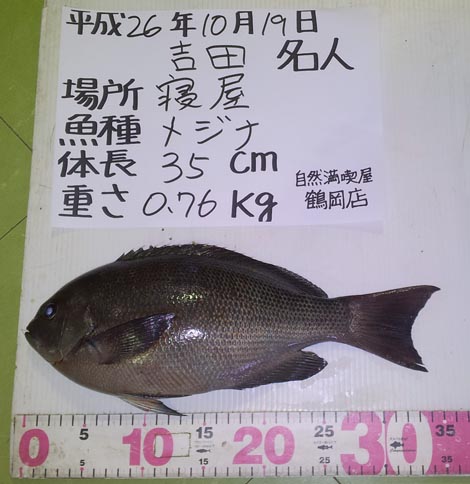 平成26年10月19日
吉田 名人
場所 寝屋
魚種 メジナ
体長 35 cm
重さ 0.76 Kg
自然満喫屋
鶴岡店
0 5 10 15 20 25 30 35